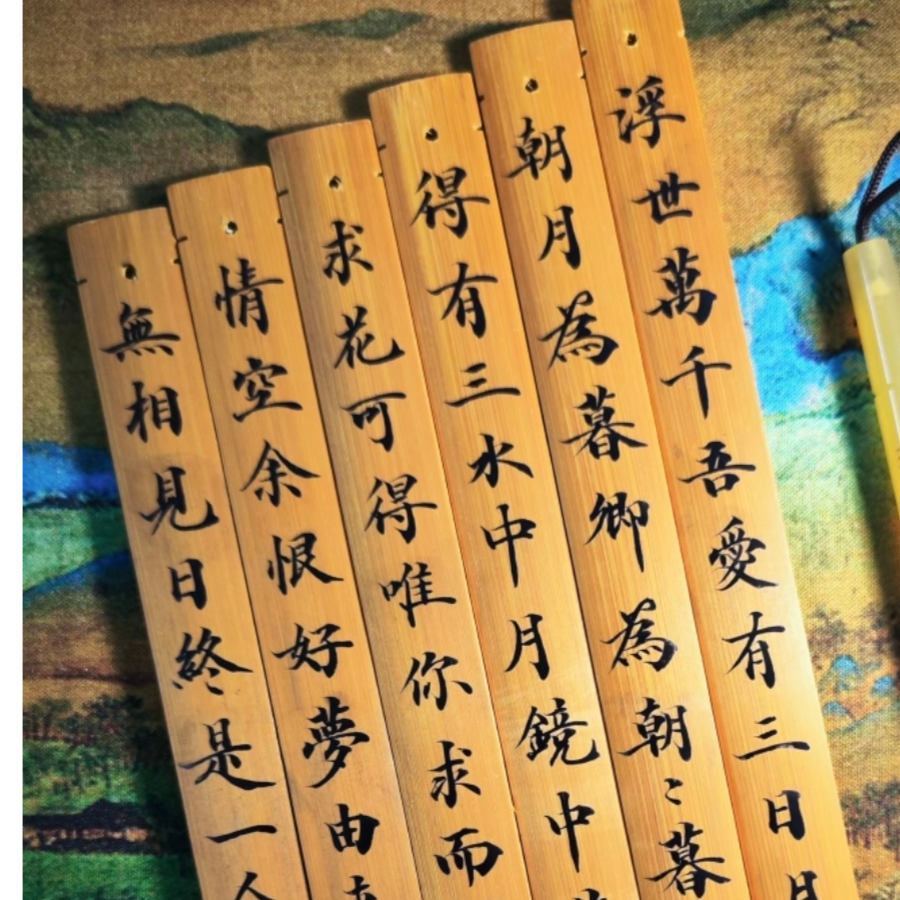 浮世萬千吾愛有三日月
朝月為暮卿為朝〻暮
得有三水中月鏡中
求花可得唯你求而
情空余恨好夢由
無相見日終是一人